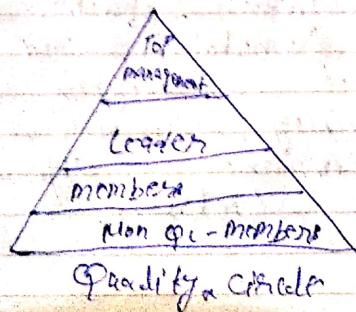 Top
management
Leader
members
Non QC-members
Quality Circle